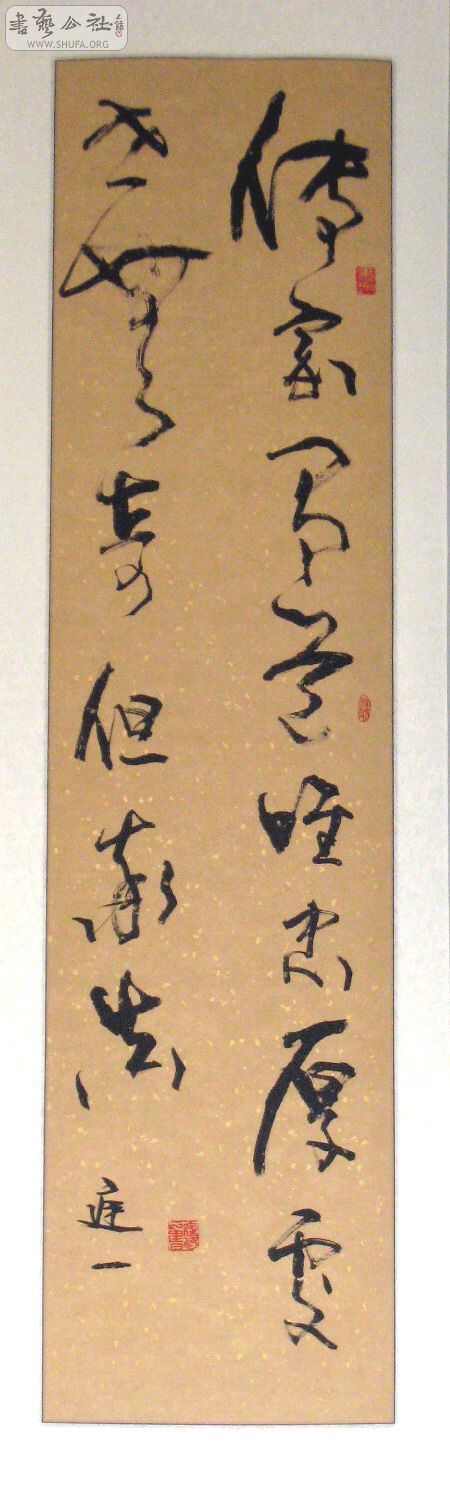 書藝公社
WWW.SHUFA.ORG
傳家有道唯忠厚處
世無奇但率真
庭一